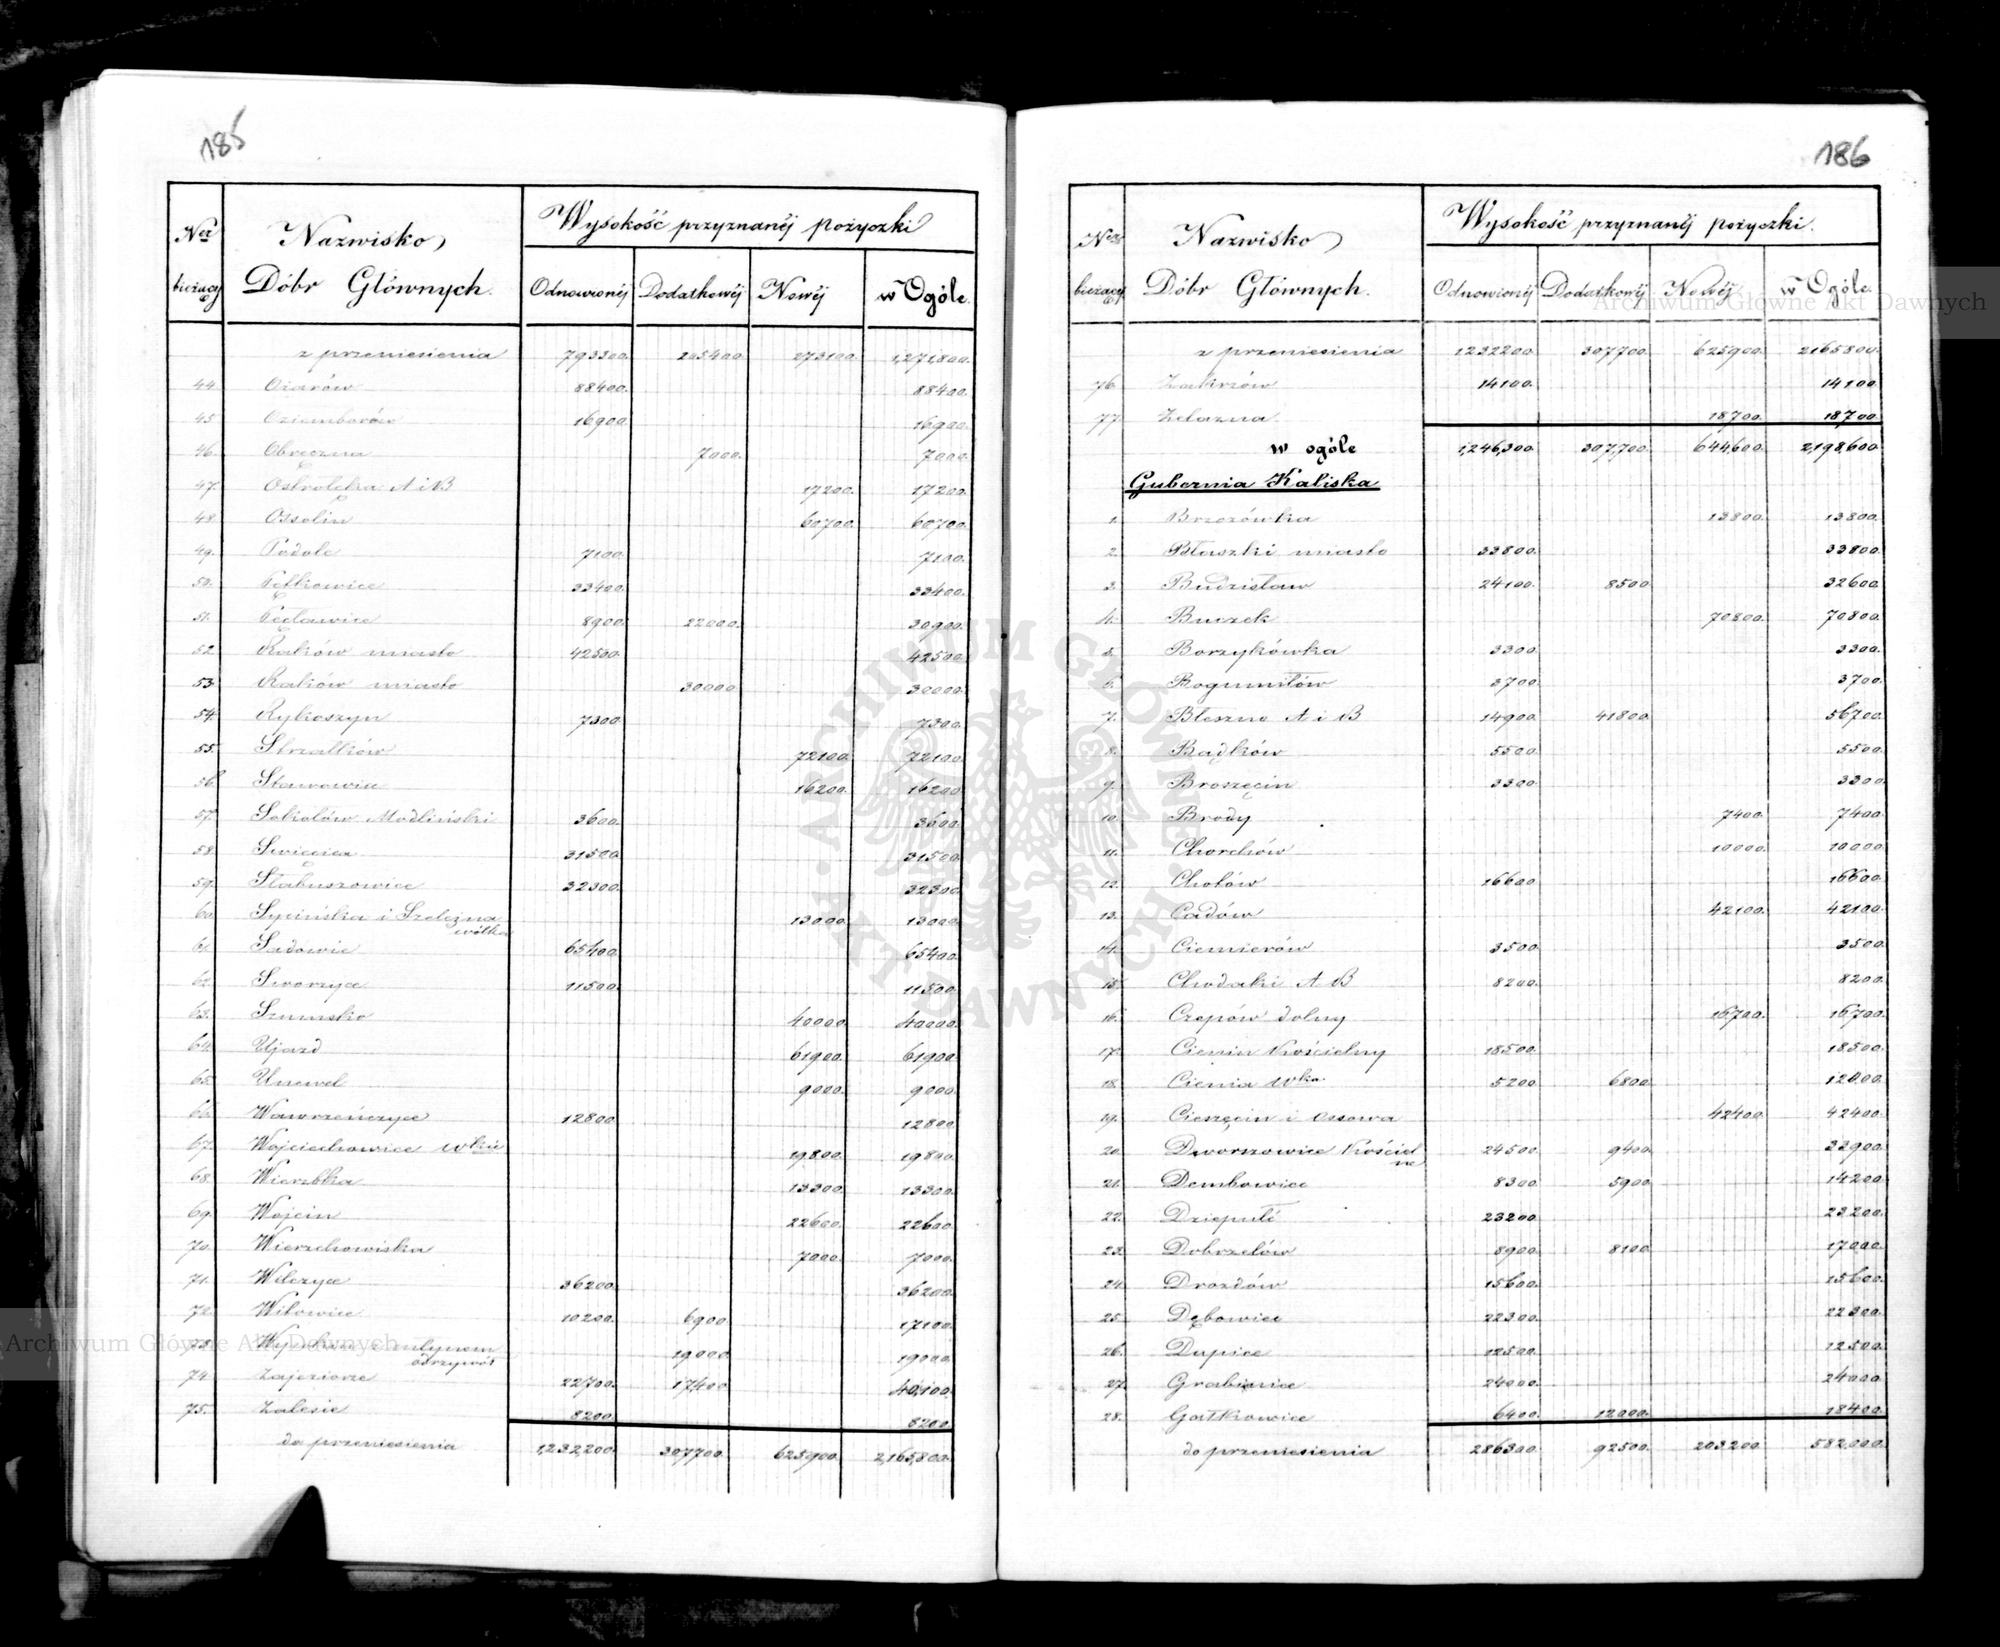 185
Nr bieżący | Nazwisko Dóbr Głównych. | Wysokość przyznanéj pożyczki
Odnowionéj | Dodatkowéj | Nowéj | w Ogóle.
z przeniesienia 793300. 205400. 273100. 1,271,800.
44. Ożarów 88400. 88400.
45. Oziemborów 16900. 16900.
46. Obręczna 7000. 7000.
47. Ostrołęka A i B 17200. 17200.
48. Ossolin 60700. 60700.
49. Podole 7100. 7100.
50. Pętkowice 33400. 33400.
51. Pęcławice 8900. 22000. 30900.
52. Raków miasto 42500. 42500.
53. Raków miasto 30000. 30000.
54. Rykoszyn 7300. 7300.
55. Strzałków 72100. 72100.
56. Starowice 16200. 16200.
57. Sokołów Modliński 3600. 3600.
58. Święcica 31500. 31500.
59. Słabuszowice 32300. 32300.
60. Sycińska i Szeleźna wólka 13000. 13000.
61. Sadowie 65400. 65400.
62. Sworzyce 11500. 11500.
63. Szumsko 40000. 40000.
64. Ujazd 61900. 61900.
65. Unewel 9000. 9000.
66. Wawrzeńczyce 12800. 12800.
67. Wojciechowice Wkie 19800. 19800.
68. Wierzbka 13300. 13300.
69. Wójcin 22600. 22600.
70. Wierzchowiska 7000. 7000.
71. Wilczyce 36200. 36200.
72. Witowice 10200. 6900. 17100.
73. z młynem odrzywół 19000. 19000.
74. Zajeziorze 22700. 17400. 40,100.
75. Zalesie 8200. 8200.
do przeniesienia 1,232,200. 307700. 625900. 2,165,800.
186
Nr bieżący | Nazwisko Dóbr Głównych. | Wysokość przyznanéj pożyczki.
Odnowionéj | Dodatkowéj | Nowéj | w Ogóle.
z przeniesienia 1232200. 307700. 625900. 2165800.
76. Zakrzów 14100. 14100.
77. Żelazna 18700. 18700.
w ogóle 1,246,300. 307,700. 644,600. 2,198,600.
Gubernia Kaliska
1. Brzozówka 13800. 13800.
2. Błaszki miasto 33800. 33800.
3. Budzisław 24100. 8500. 32600.
4. Buczek 70800. 70800.
5. Borzykówka 3300. 3300.
6. Bogumiłów 3700. 3700.
7. Błeszno A i B 14900. 41800. 56700.
8. Bądków 5500. 5500.
9. Broszęcin 3300. 3300.
10. Brody 7400. 7400.
11. Chorchów 10000. 10000.
12. Chotów 16600. 16600.
13. Cadów 42100. 42100.
14. Ciemierów 3500. 3500.
15. Chodaki A B 8200. 8200.
16. Czepów dolny 16700. 16700.
17. Cienin Kościelny 18500. 18500.
18. Cienia Wka 5200. 6800. 12000.
19. Cieszęcin i Ossowa 42400. 42400.
20. Dworszowice Kościelne 24500. 9400. 33900.
21. Dembowice 8300. 5900. 14200.
22. Dziepułć 23200. 23200.
23. Dobrzelów 8900. 8100. 17000.
24. Drozdów 15600. 15600.
25. Dębowice 22300. 22300.
26. Dupice 12500. 12500.
27. Grabianice 24000. 24000.
28. Gałkowice 6400. 12000. 18400.
do przeniesienia 286300. 92500. 203200. 582,000.
Archiwum Główne Akt Dawnych
Archiwum Główne Akt Dawnych
ARCHIWUM GŁÓWNE AKT DAWNYCH